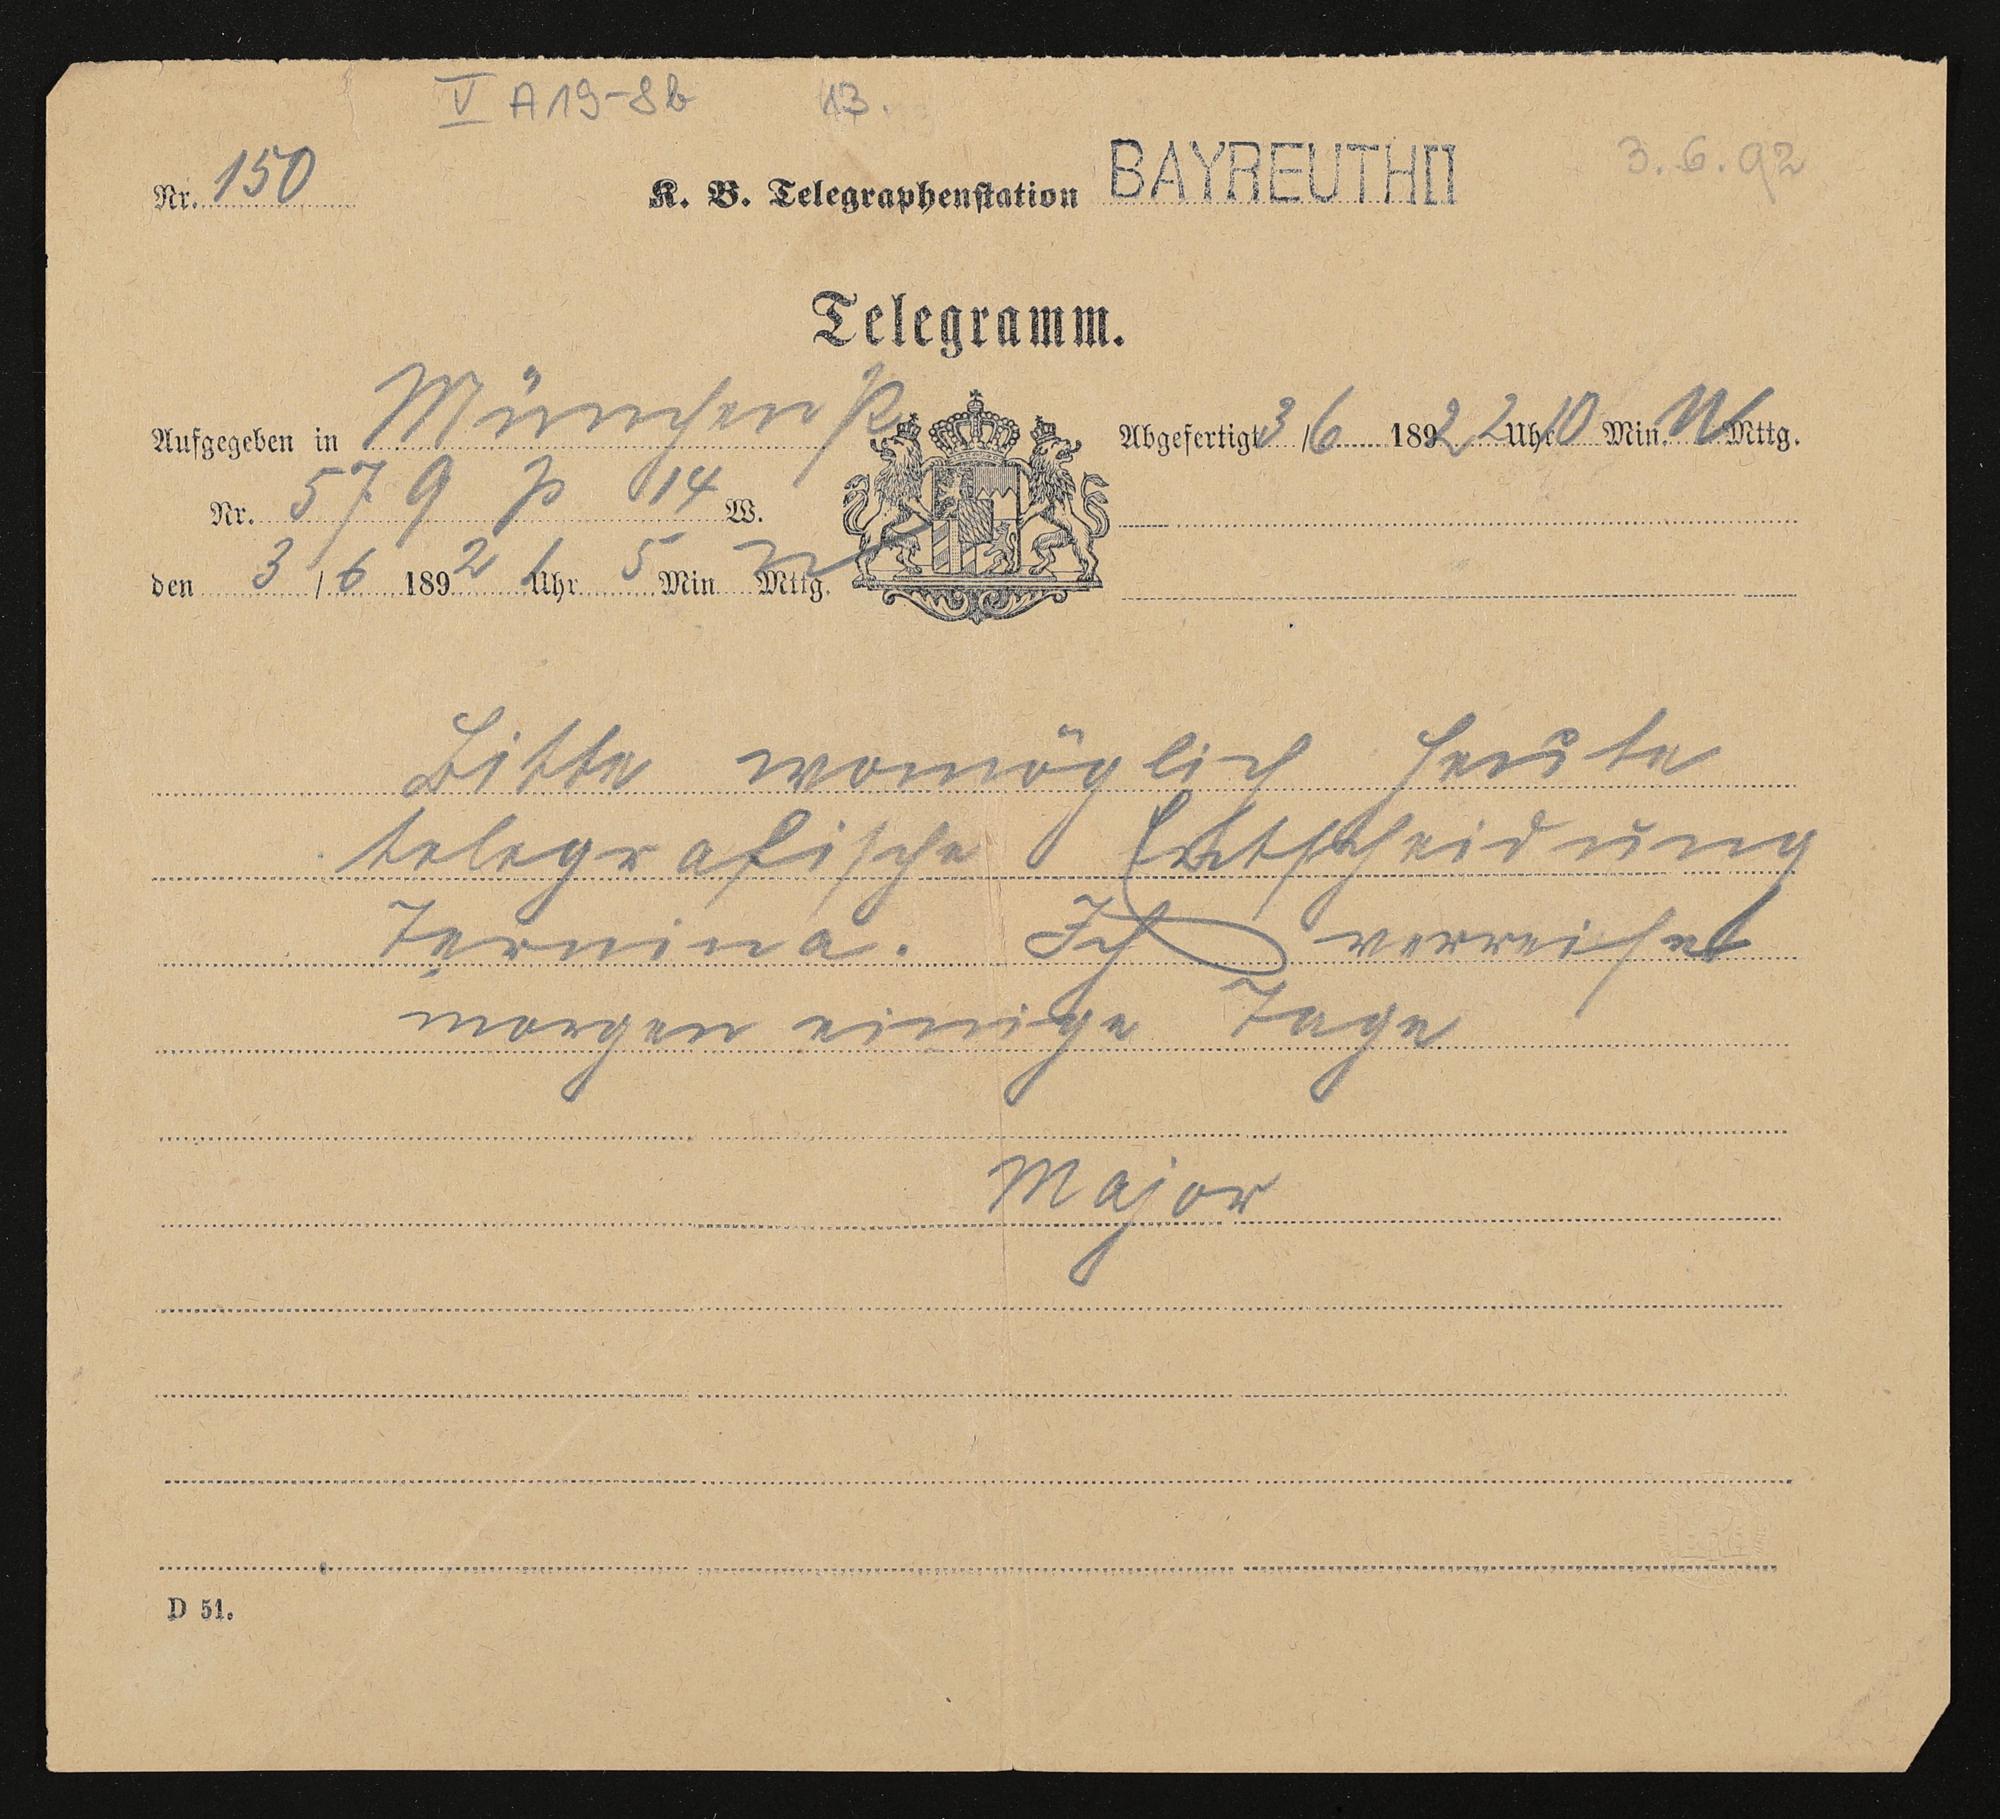 V A19-8b 13.
3.6.92
Nr. 150 K. B. Telegraphenstation BAYREUTH II
Telegramm.
Aufgegeben in München P. Abgefertigt 3/6 1892 2 Uhr 10 Min. N Mttg.
Nr. 579 p 14 W.
den 3/6 1892 1 Uhr 5 Min N Mttg.
Bitte womöglich heute
telegrafische Entscheidung
Ternina. Ich verreise
morgen einige Tage
Major
D 51.